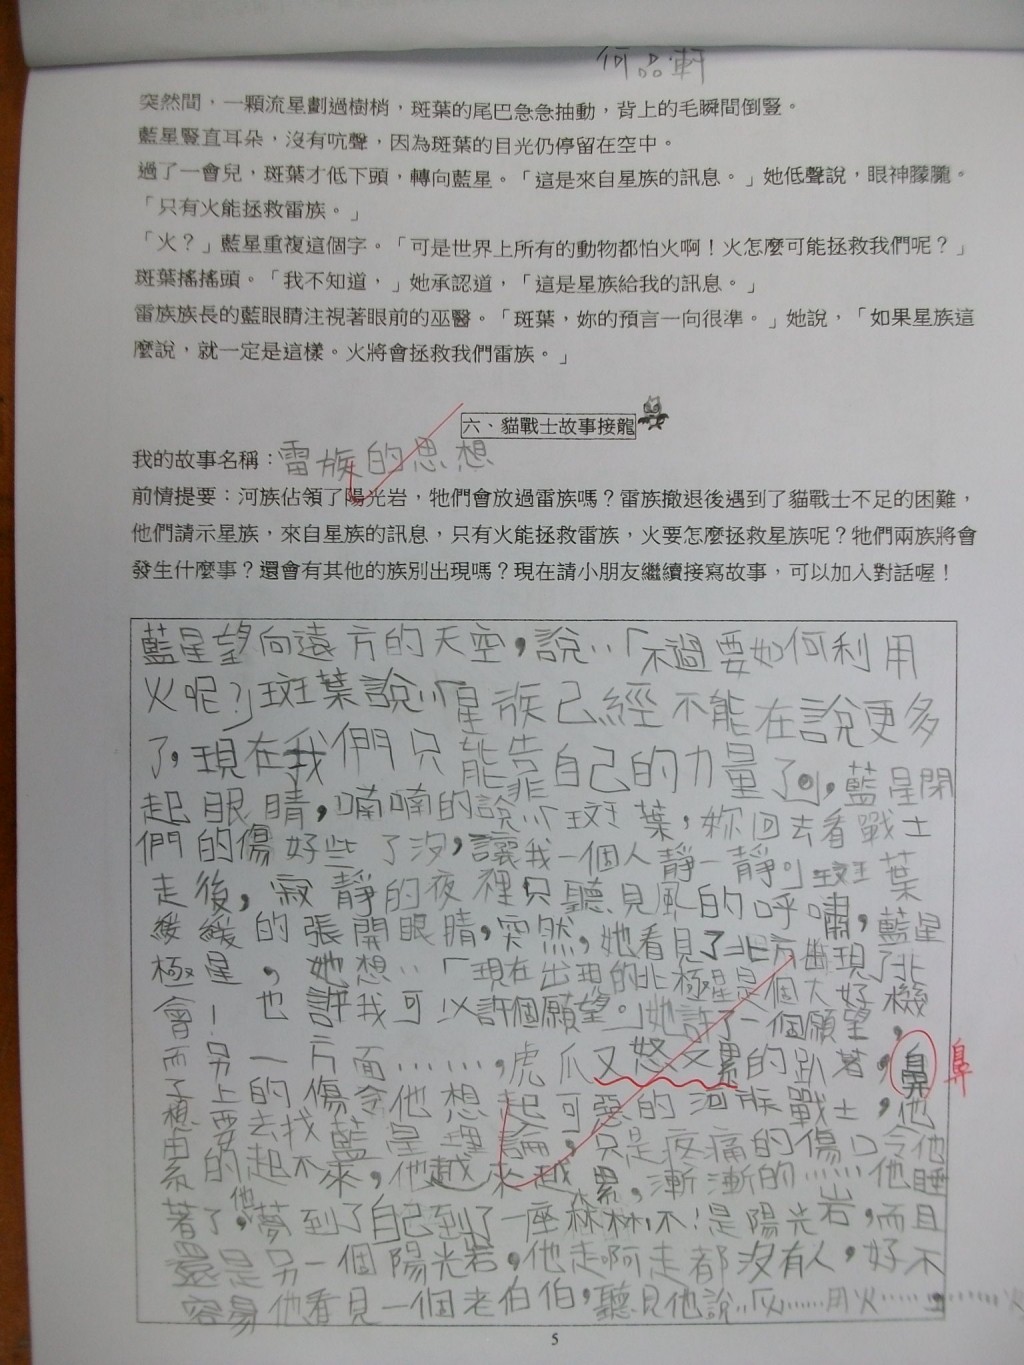 何品軒
突然間，一顆流星劃過樹梢，斑葉的尾巴急急抽動，背上的毛瞬間倒豎。
藍星豎直耳朵，沒有吭聲，因為斑葉的目光仍停留在空中。
過了一會兒，斑葉才低下頭，轉向藍星。「這是來自星族的訊息。」她低聲說，眼神朦朧。
「只有火能拯救雷族。」
「火？」藍星重複這個字。「可是世界上所有的動物都怕火啊！火怎麼可能拯救我們呢？」
斑葉搖搖頭。「我不知道，」她承認道，「這是星族給我的訊息。」
雷族族長的藍眼睛注視著眼前的巫醫。「斑葉，妳的預言一向很準。」她說，「如果星族這
麼說，就一定是這樣。火將會拯救我們雷族。」
六、貓戰士故事接龍
我的故事名稱：雷族的思想
前情提要：河族佔領了陽光岩，牠們會放過雷族嗎？雷族撤退後遇到了貓戰士不足的困難，
他們請示星族，來自星族的訊息，只有火能拯救雷族，火要怎麼拯救星族呢？牠們兩族將會
發生什麼事？還會有其他的族別出現嗎？現在請小朋友繼續接寫故事，可以加入對話喔！
藍星望向遠方的天空，說：「不過要如何利用
火呢？」斑葉說：「星族已經不能在說更多
了，現在我們只能靠自己的力量了」，藍星閉
起眼睛，喃喃的說：「斑葉，妳回去看戰士
們的傷好些了沒，讓我一個人靜一靜」斑葉
走後，寂靜的夜裡只聽見風的呼嘯，藍星
緩緩的張開眼睛，突然，她看見了北方出現了北
極星，她想：「現在出現的北極星是個大好機
會！也許我可以許個願望。」她許了一個願望，
而另一方面……，虎爪又怒又累的趴著，鼻 鼻
子上的傷令他想起可惡的河族戰士，他
想要去找藍星理論，只是疼痛的傷口令他
由的起不來，他越來越累，漸漸的……他睡
著了，他夢到了自己到了一座森林，不！是陽光岩，而且
還是另一個陽光岩，他走啊走都沒有人，好不
容易他看見一個老伯伯，聽見他說：「火……用火……
5